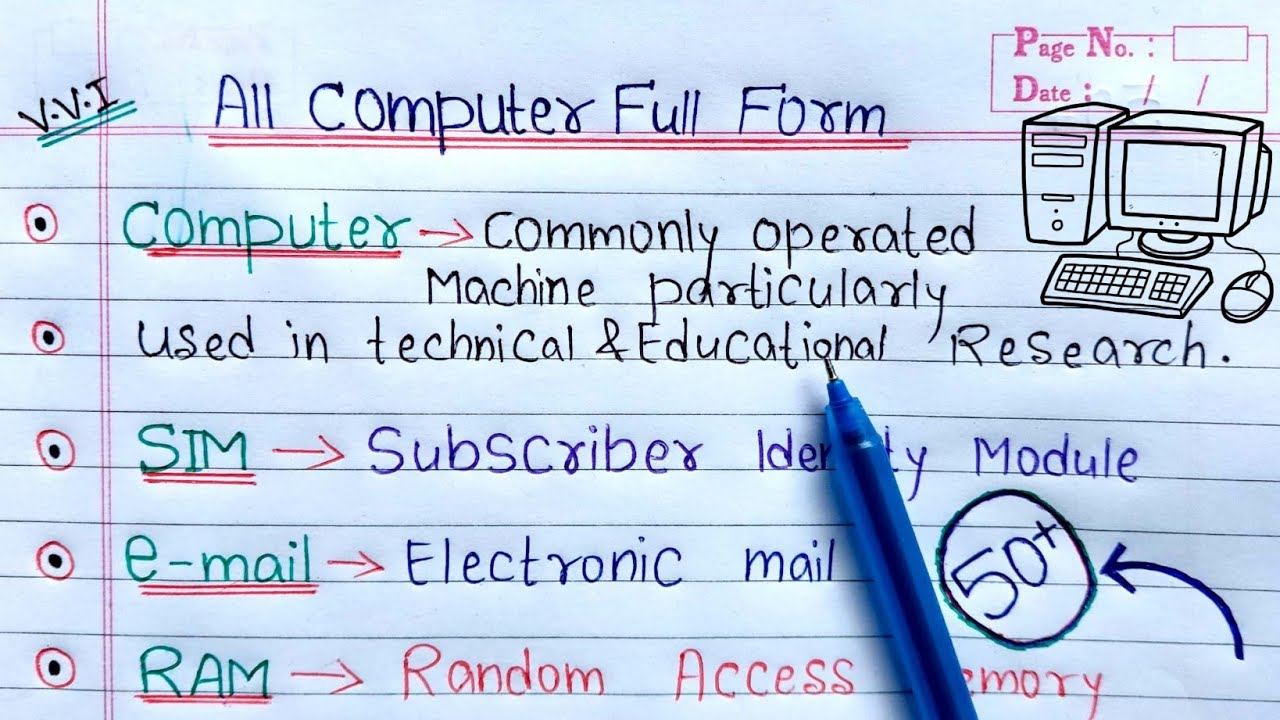 Page No. :
Date : / /
V.V.I
All Computer Full Form
Computer → Commonly operated
Machine particularly
used in technical & Educational Research.
SIM → Subscriber Module
e-mail → Electronic mail
50+
RAM → Random Access